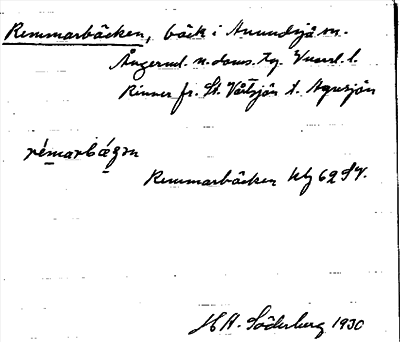 Remmarbäcken, bäck i Anundsjö sn.
Ångerml. n. doms. tg. Vnorrl. l.
Rinner fr. St. Våtsjön t. Agnsjön
rémarbǽgən
Remmarbäcken Kbg 62 SV.
H A. Söderberg 1930